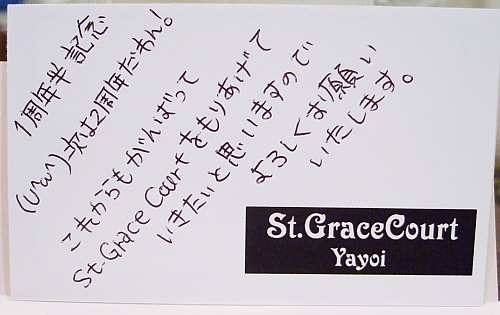 1周年半記念
(U^ω^)次は2周年だわん!
これからもがんばって
St.Grace Courtをもりあげて
いきたいと思いますので
よろしくお願い
いたします。
St.GraceCourt
Yayoi